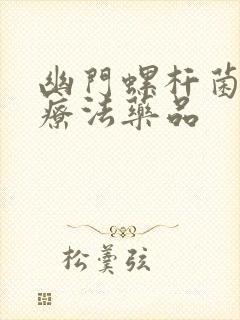 幽門螺杆菌
療法藥品
松羹弦